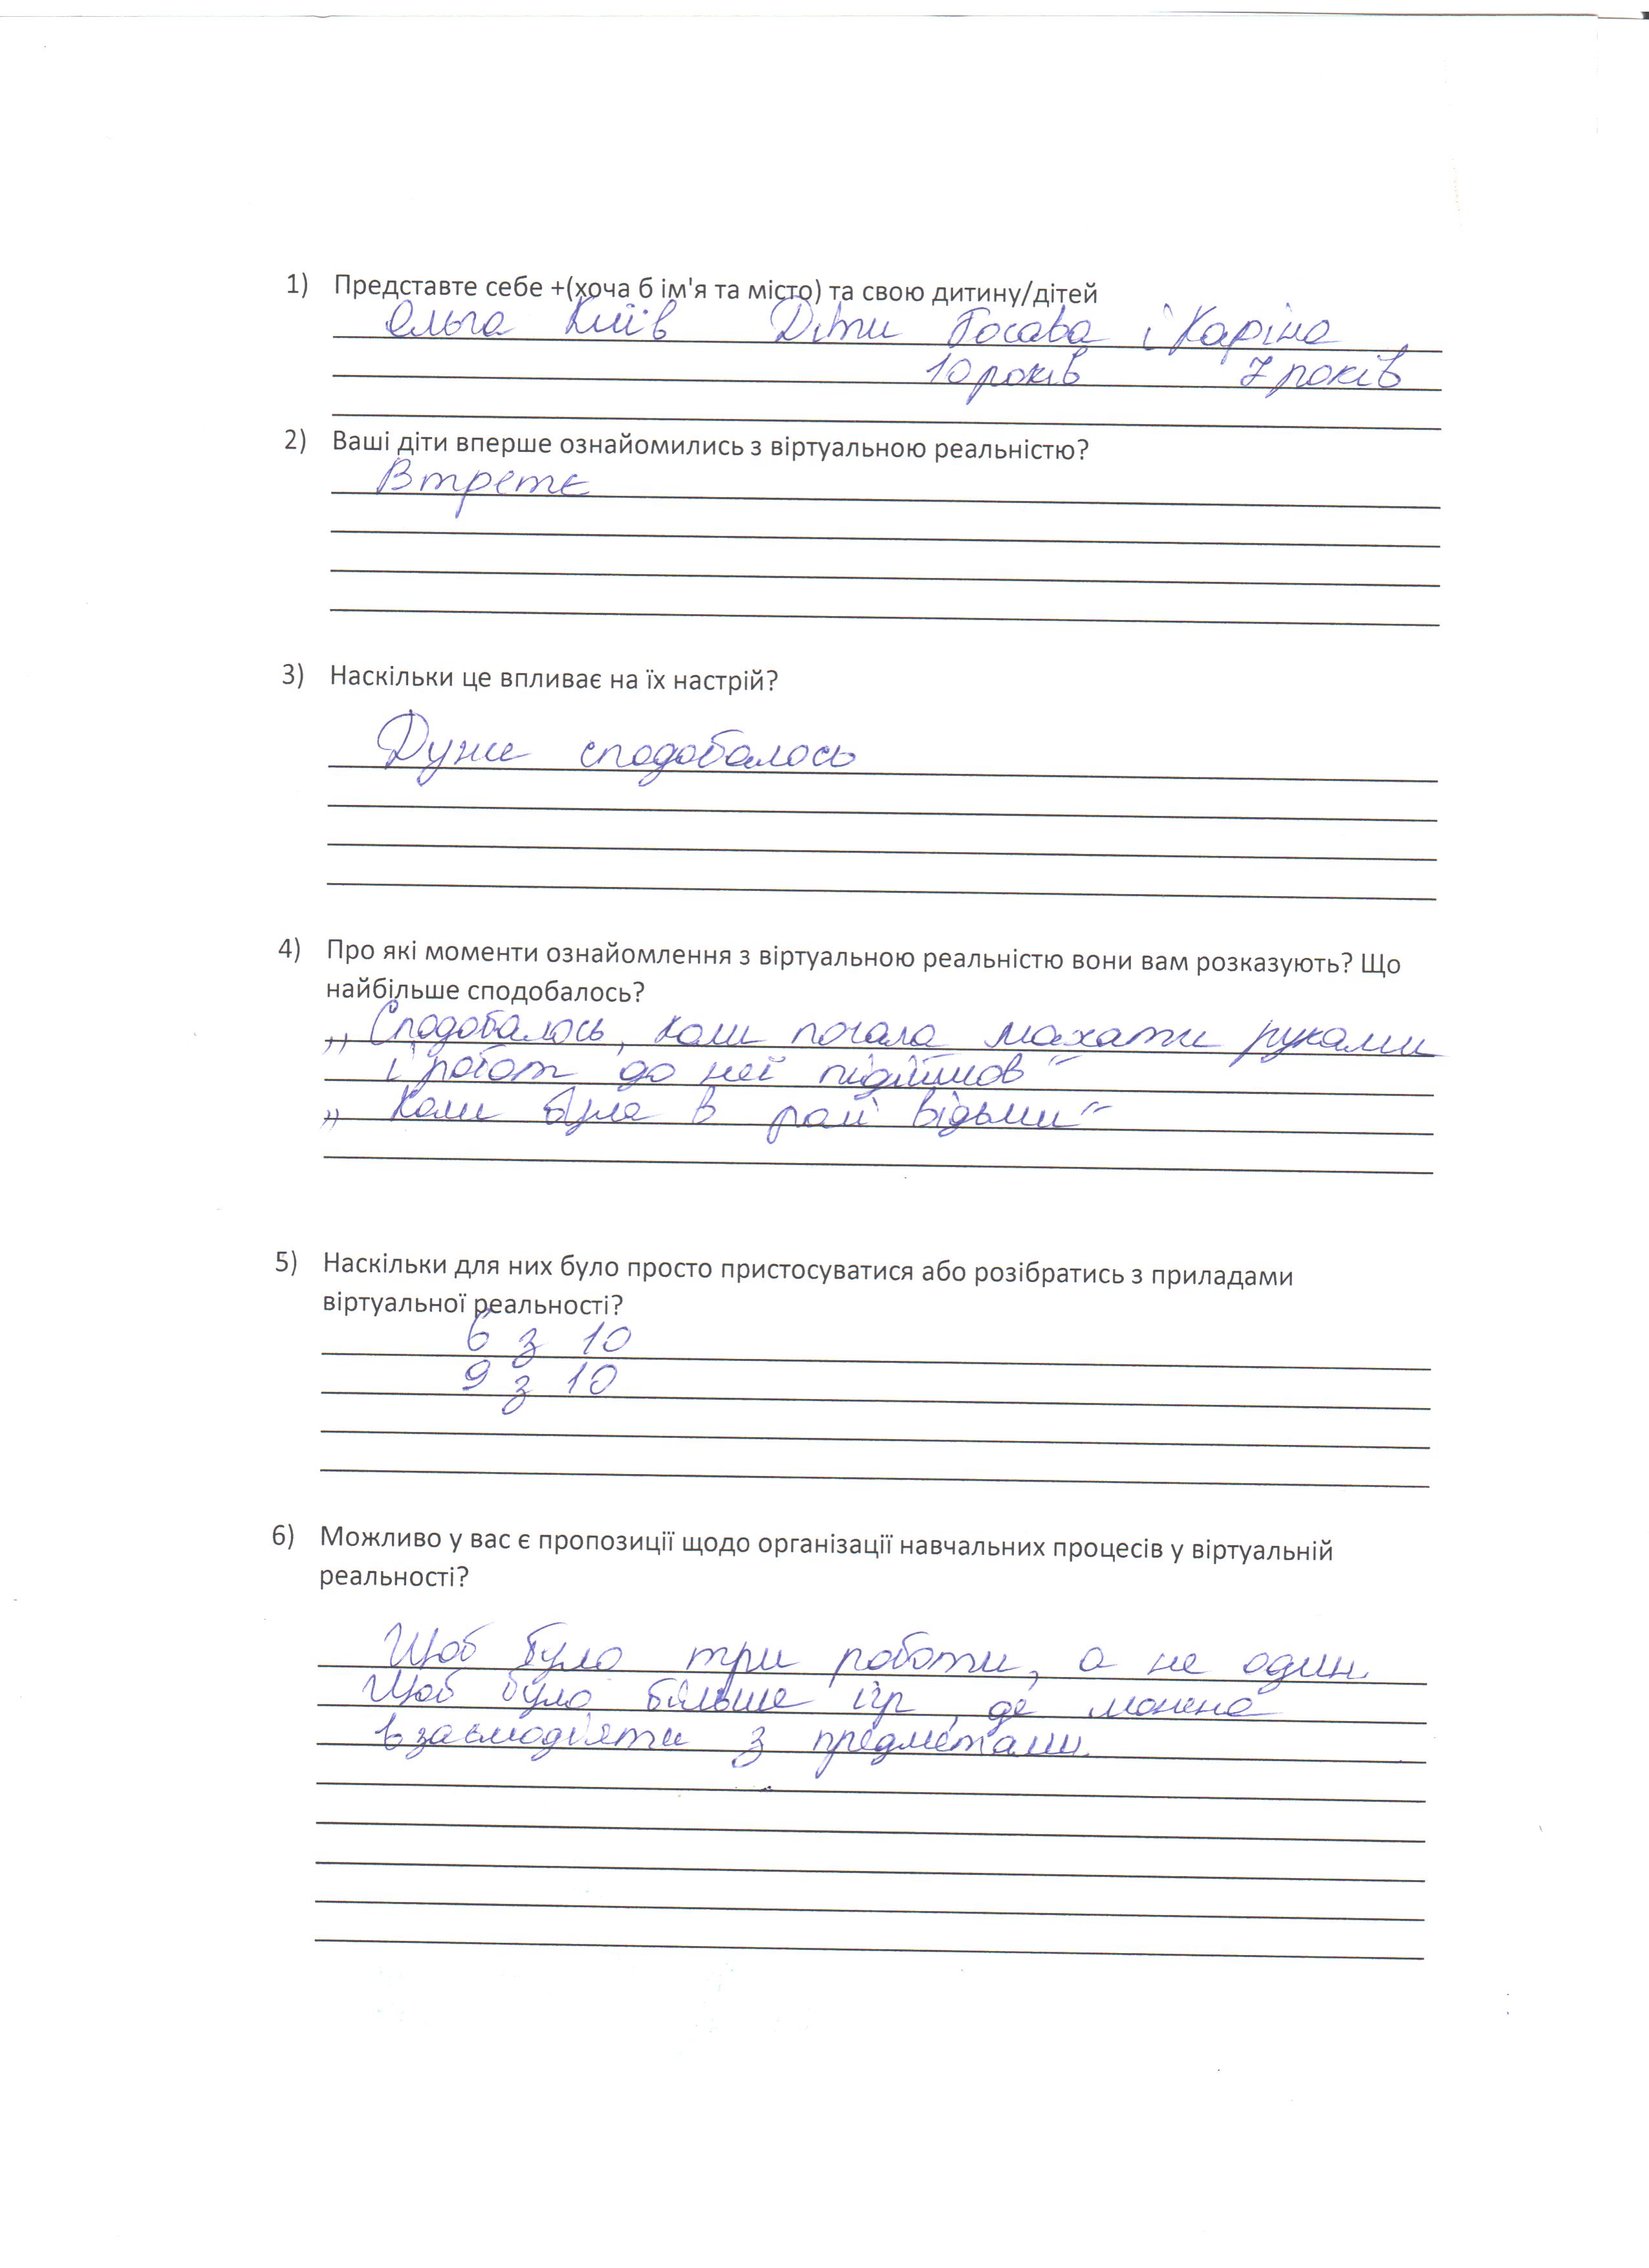 1) Представте себе +(хоча б ім'я та місто) та свою дитину/дітей
Ольга Київ Діти і Каріна
10 років 7 років
2) Ваші діти вперше ознайомились з віртуальною реальністю?
Втретє
3) Наскільки це впливає на їх настрій?
Дуже сподобалось
4) Про які моменти ознайомлення з віртуальною реальністю вони вам розказують? Що
найбільше сподобалось?
„Сподобалось, коли почала махати руками
і робот до неї підійшов"
„Коли була в ролі відьми"
5) Наскільки для них було просто пристосуватися або розібратись з приладами
віртуальної реальності?
6 з 10
9 з 10
6) Можливо у вас є пропозиції щодо організації навчальних процесів у віртуальній
реальності?
Щоб було три роботи, а не один.
Щоб було більше ігр, де можна
взаємодіяти з предметами.